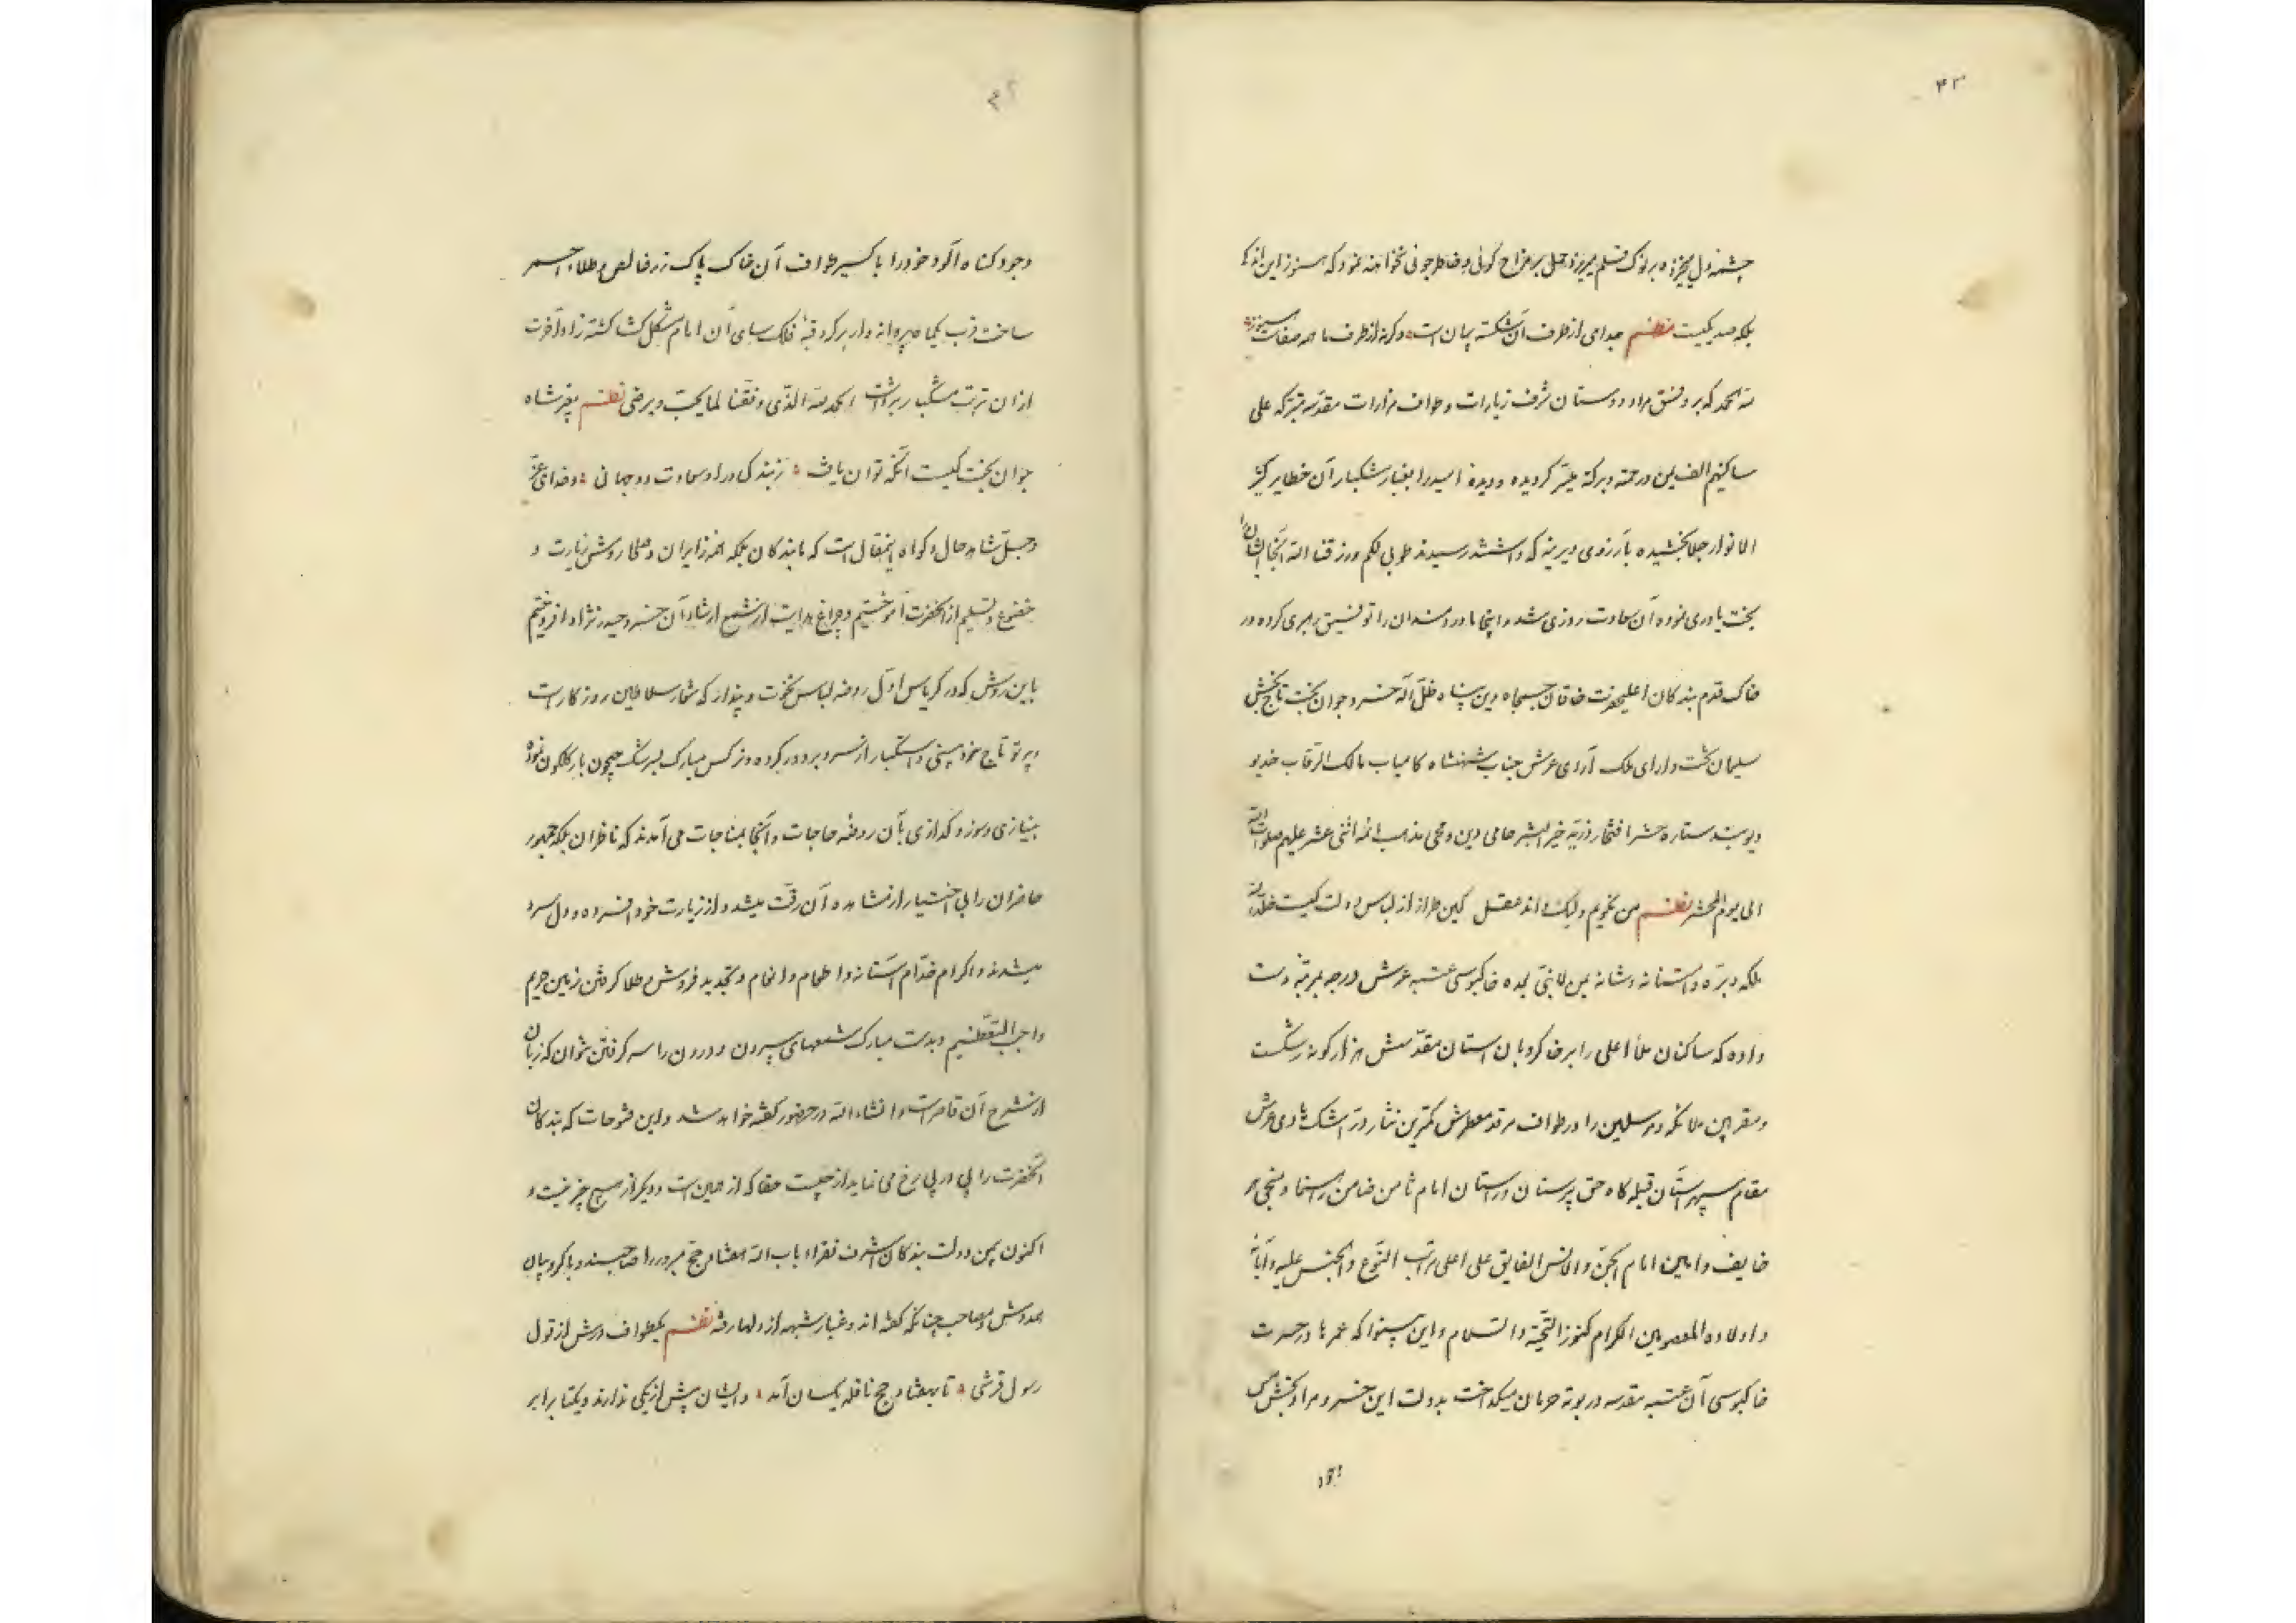 ۴۳
چشمه دل بر نوک قلم میریزد حمل بر مزاح کوئی و خاطر جوئی نخواهند نمود که هنوز این اندکی
بلکه صد یکیست نظم جدامی از طرف آن شکسته پیمان است وکرنه از طرف ما همه صفاست
لله الحمد که بر وفق مراد دوستان شرف زیارات و طواف مزارات مقدسه متبرکه علی
ساکنیهم الف من ورحمة وبرکة میسر کردیده و دیده امید را بغبار مشکبار آن خطایر کثیر
الانوار جلا بخشیده بآرزوی دیرینه که داشتند رسیدند طوبی لکم ورزقنا الله آنجا ایشانرا
بخت یاوری نموده آن سعادت روزی شد و اینجا ما دردمندان را توفیق رهبری کرده در
خاک قدم بندکان اعلیحضرت خاقان جمجاه دین پناه ظل اله خسرو جوان بخت تاج بخش
سلیمان تخت دارای ملک آرای عرش جناب شهنشاه کامیاب مالک الرقاب خدیو
دیوبند ستاره حشر افتخار ذریه خیر البشر حامی دین و محی مذهب ائمه اثنی عشر علیهم صلوات الله
الی یوم المحشر نظم من نکویم ولیک داند عقل کین طراز از لباس دولت کیست خلد الله
ملکه و آستانه وشانه من لا نبی بعده خاکبوسی عتبه عرش درجه بمرتبه دست
داده که ساکنان ملأ اعلی را بر خاکروبان استان مقدسش هزار کونه رشکست
ومقربین ملائکه ومرسلین را در طواف مرقد معطرش کمترین نثار در اشک شادی عرش
مقام سپهر آستان قبله کاه حق پرستان در استان امام ثامن ضامن رهنما ومنجی هر
خایف وامین امام الجن والانس الفایق علی اعلی مراتب النوع والجنس علیه وآبائه
واولاده المعصومین الکرام کنوز التحیة والسلام واین بینوا که عمرها در حسرت
خاکبوسی آن عتبه مقدسه در بوته حرمان میکداخت بدولت این خسرو مراد بخش
وجود کناه آلود خود را باکسیر طواف آن خاک پاک زر خالص وطلاء احمر
ساخت قرب یکماه پروانه وار بر کرد قبهٔ فلک سای آن امام مشکل کشا کشته زاد آخرت
از ان تربت مشکبار برداشت الحمد لله الذی وفقنا لما یحب ویرضی نظم بغیر شاه
جوان بخت کیست آنکه توان یافت ز بندکی در او سعادت دو جهانی وخدای عز
وجل شاهد حال وکواه اینمقال است که ما بندکان بلکه اهل ایران وصلحا روش زیارت و
خضوع وتسلیم از آنحضرت آموختیم وچراغ هدایت از شمع ارشاد آن خسرو حیدر نژاد افروختیم
باین روش که در کریاس اول روضه لباس نخوت و پندار که شعار سلاطین روزکار است
وپرتو تاج خود بینی واستکبار از سر وبر دور کرده ونرکس مبارک بسرشک همچون بار کلکون نموده
بنیازی وسوز وکدازی بآن روضه حاجات وآنجا بمناجات می آمدند که ناظران بلکه جمهور
حاضران را بی اختیار از مشاهده آن رقت میشد و از زیارت خود افسرده ودل سرد
میشدند واکرام خدام آستانه واطعام وانعام وتجدید فروش وطلا کرفتن زمین حریم
واجب التعظیم وبدست مبارک شمعهای بیرون و درون را سر کرفتن نتوان که زبان
از شرح آن قاصر است وانشاء الله در حضور کفته خواهد شد واین فتوحات که بندکان
آنحضرت را پی در پی رخ می نماید از چیست حقا که از همین است ودیکر از هیچ چیز نیست و
اکنون بیمن دولت بندکان اشرف فقراء باب الله هفتاد حج مبرور را صاحبند وبا کروبیان
همدوش ومصاحب چنانکه کفته اند وغبار شبهه از دلها رفته نظم یکطواف درش از قول
رسول قرشی تا بهفتاد حج نافله یکسان آمد وایشان پیش از یکی ندارند ویکتا برابر